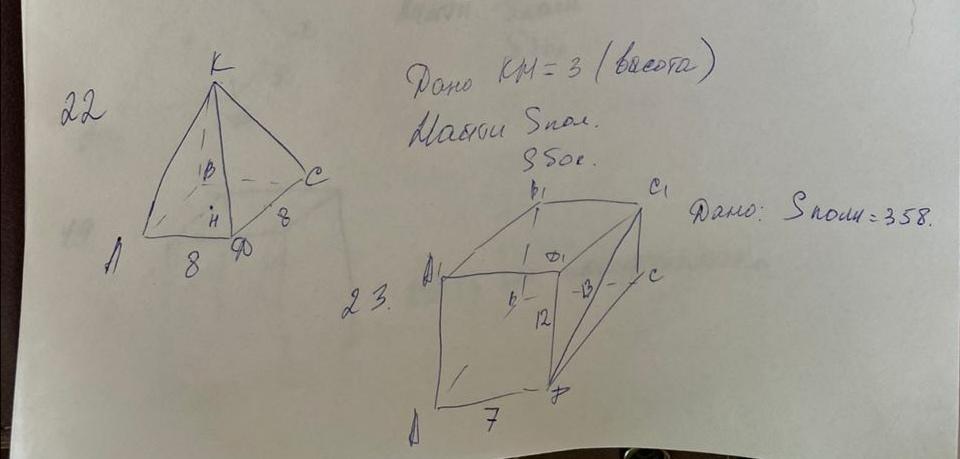 22
K
Дано KH = 3 (высота)
Найти Sпол.
Sбок.
B
C
H
8
A
8
D
B₁
C₁
Дано: Sполн = 358.
A₁
D₁
23.
B
13
C
12
D
A
7